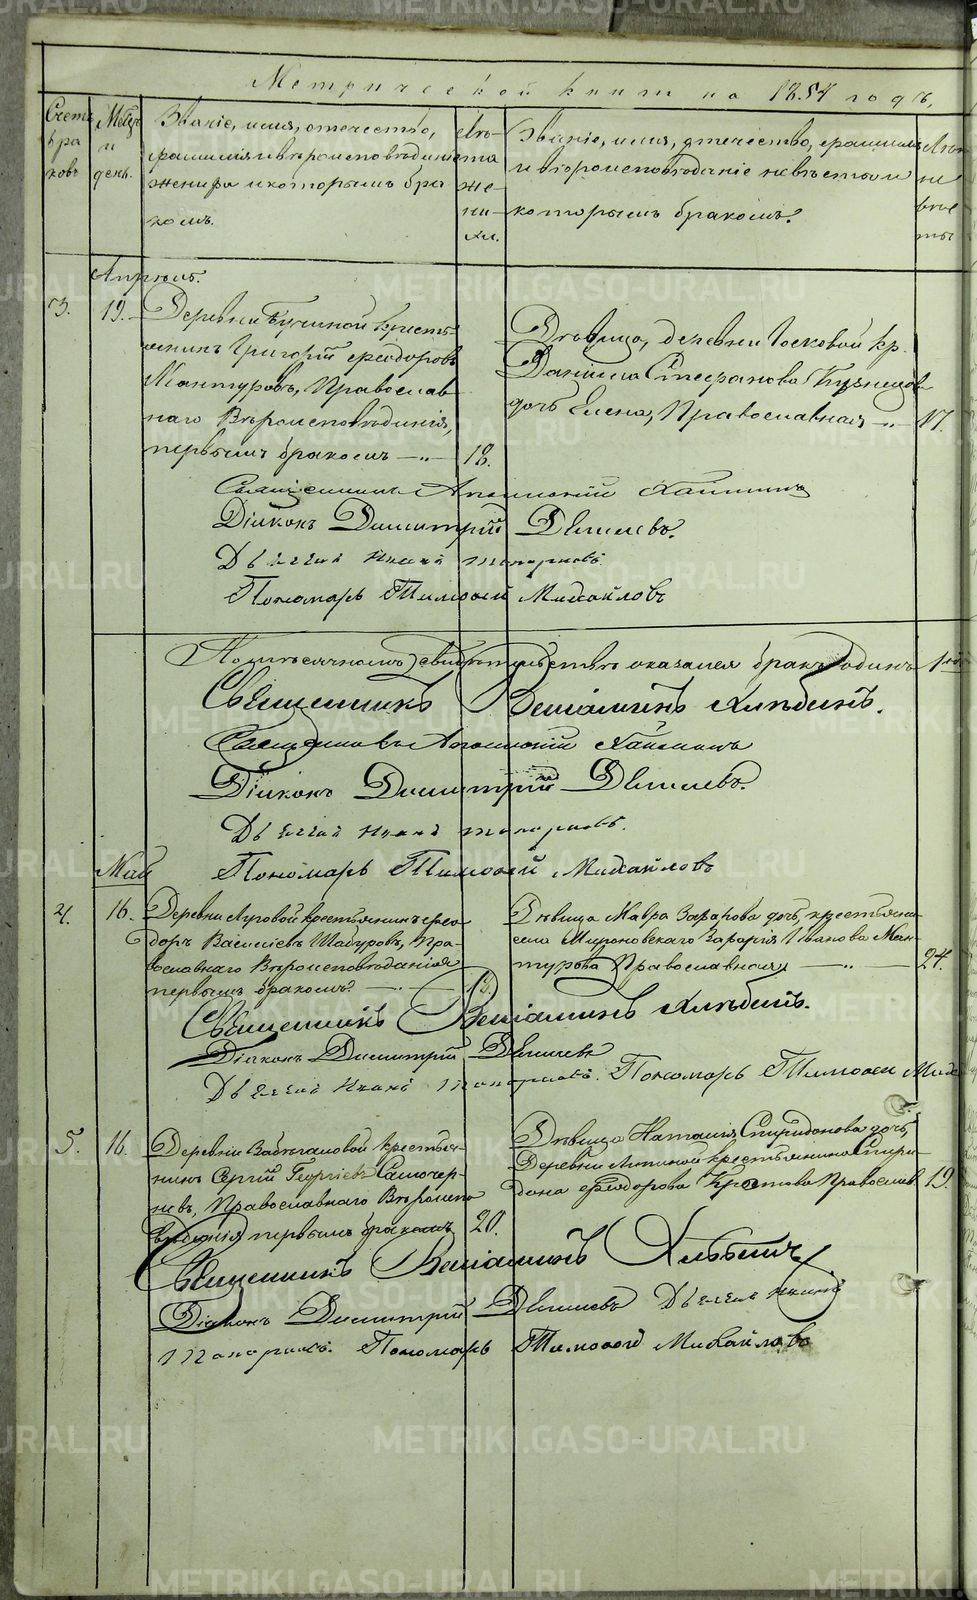 Метрической книги на 1854 годъ,
Счетъ бра ковъ
Мѣцъ и день.
Званіе, имя, отчество, фамилія и вѣроисповѣданіе жениха и которымъ бра комъ.
Лѣ та же ни ха.
Званіе, имя, отчество, фамилія и вѣроисповѣданіе невѣсты и которымъ бракомъ?
Лѣта не вѣс ты
Апрѣль.
3. 19. Деревни крестья
янинъ Григорій Феодоровъ
Мантуровъ, Православ
наго Вѣроисповѣданія,
первымъ бракомъ 18.
Дѣвица, деревни кр.
Даніила Стефанова Кузнецова
дочь Елена, Православная 17.
Священникъ
Діаконъ Димитрій
Дьячекъ Иванъ Топорковъ.
Пономарь Тимофей Михайловъ
По мѣсячномъ свидѣтельствѣ оказался бракъ одинъ 1
Священникъ Веніаминъ Хлѣбинъ.
Священникъ
Діаконъ Димитрій
Дьячекъ Иванъ Топорковъ.
Май
Пономарь Тимофей Михайловъ
4. 16. Деревни Луговой крестьянинъ Фео
доръ Васильевъ Шабуровъ, Пра
вославнаго Вѣроисповѣданія
первымъ бракомъ?
Дѣвица Мавра Захарова дочь, крестьяни
села Мироновскаго Захарія Иванова Ман
турова Православная 24.
Священникъ Веніаминъ Хлѣбинъ.
Діаконъ Димитрій
Дьячекъ Иванъ Топорковъ. Пономарь Тимофей Миха
5. 16. Деревни крестья
нинъ Сергій Георгіевъ
Православнаго Вѣроиспо
вѣданія первымъ бракомъ 20.
Дѣвица Наталія Спиридонова дочь,
Деревни крестьянина Спири
дона Феодорова Православ. 19.
Священникъ Веніаминъ Хлѣбинъ.
Діаконъ Димитрій Дьячекъ Иванъ
Топорковъ. Пономарь Тимофей Михайловъ
METRIKI.GASO-URAL.RU